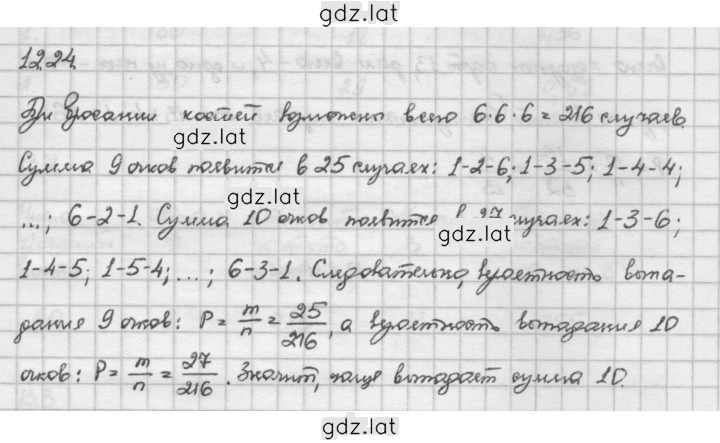 gdz.lat
1224.
При бросании костей возможны всего 6·6·6=216 случаев.
gdz.lat
Сумма 9 очков появится в 25 случаях: 1-2-6; 1-3-5; 1-4-4;
gdz.lat
...; 6-2-1. Сумма 10 очков появится в 27 случаях: 1-3-6;
gdz.lat
1-4-5; 1-5-4; ...; 6-3-1. Следовательно, вероятность выпа-
дания 9 очков: P = m/n = 25/216, а вероятность выпадания 10
очков: P = m/n = 27/216. Значит, чаще выпадает сумма 10.
gdz.lat